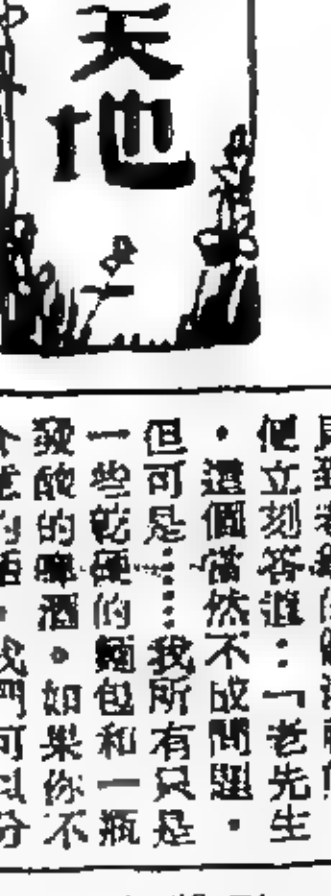 天地
便立刻答道：「老先生
，這個當然不成問題，
但可是……我所有只是
一些乾硬的麵包和一瓶
發酸的啤酒。如果你不
介意的話，我們可以分